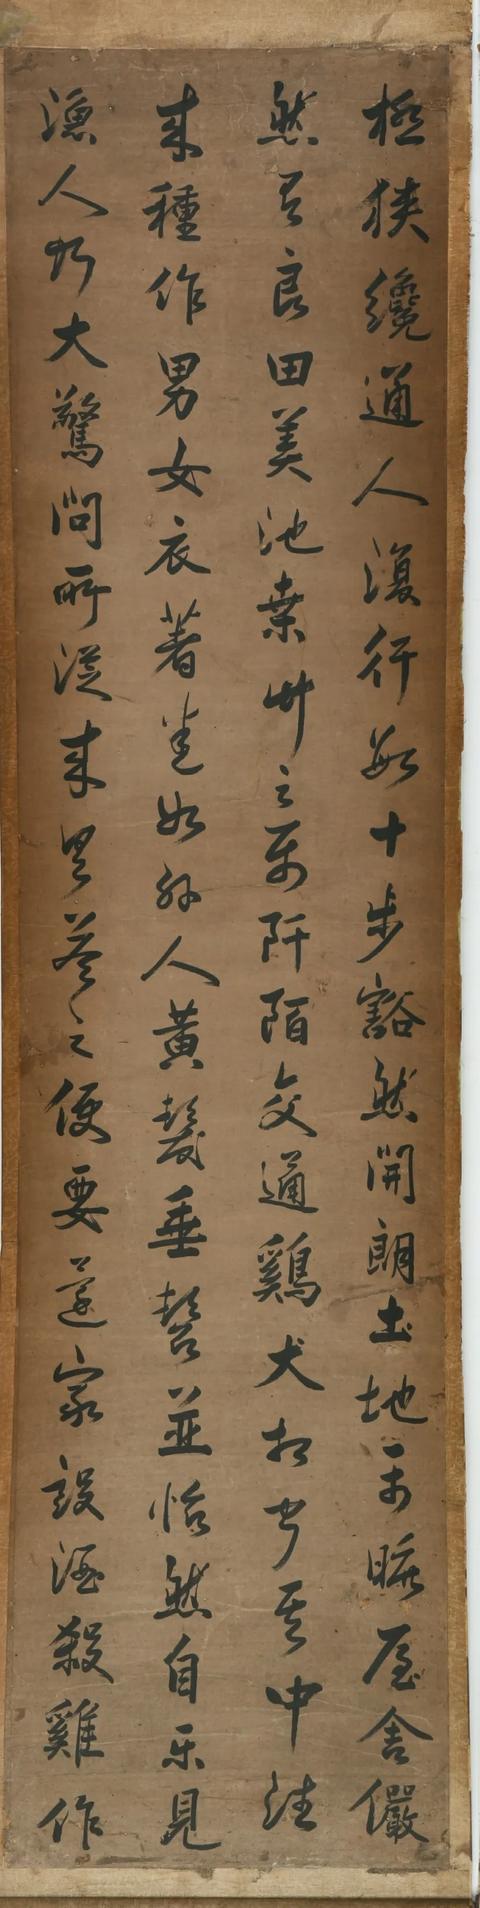 極狹纔通人復行數十步豁然開朗土地平曠屋舍儼
然有良田美池桑竹之屬阡陌交通鷄犬相聞其中往
來種作男女衣著悉如外人黃髮垂髫並怡然自樂見
漁人乃大驚問所從來具答之便要還家設酒殺雞作